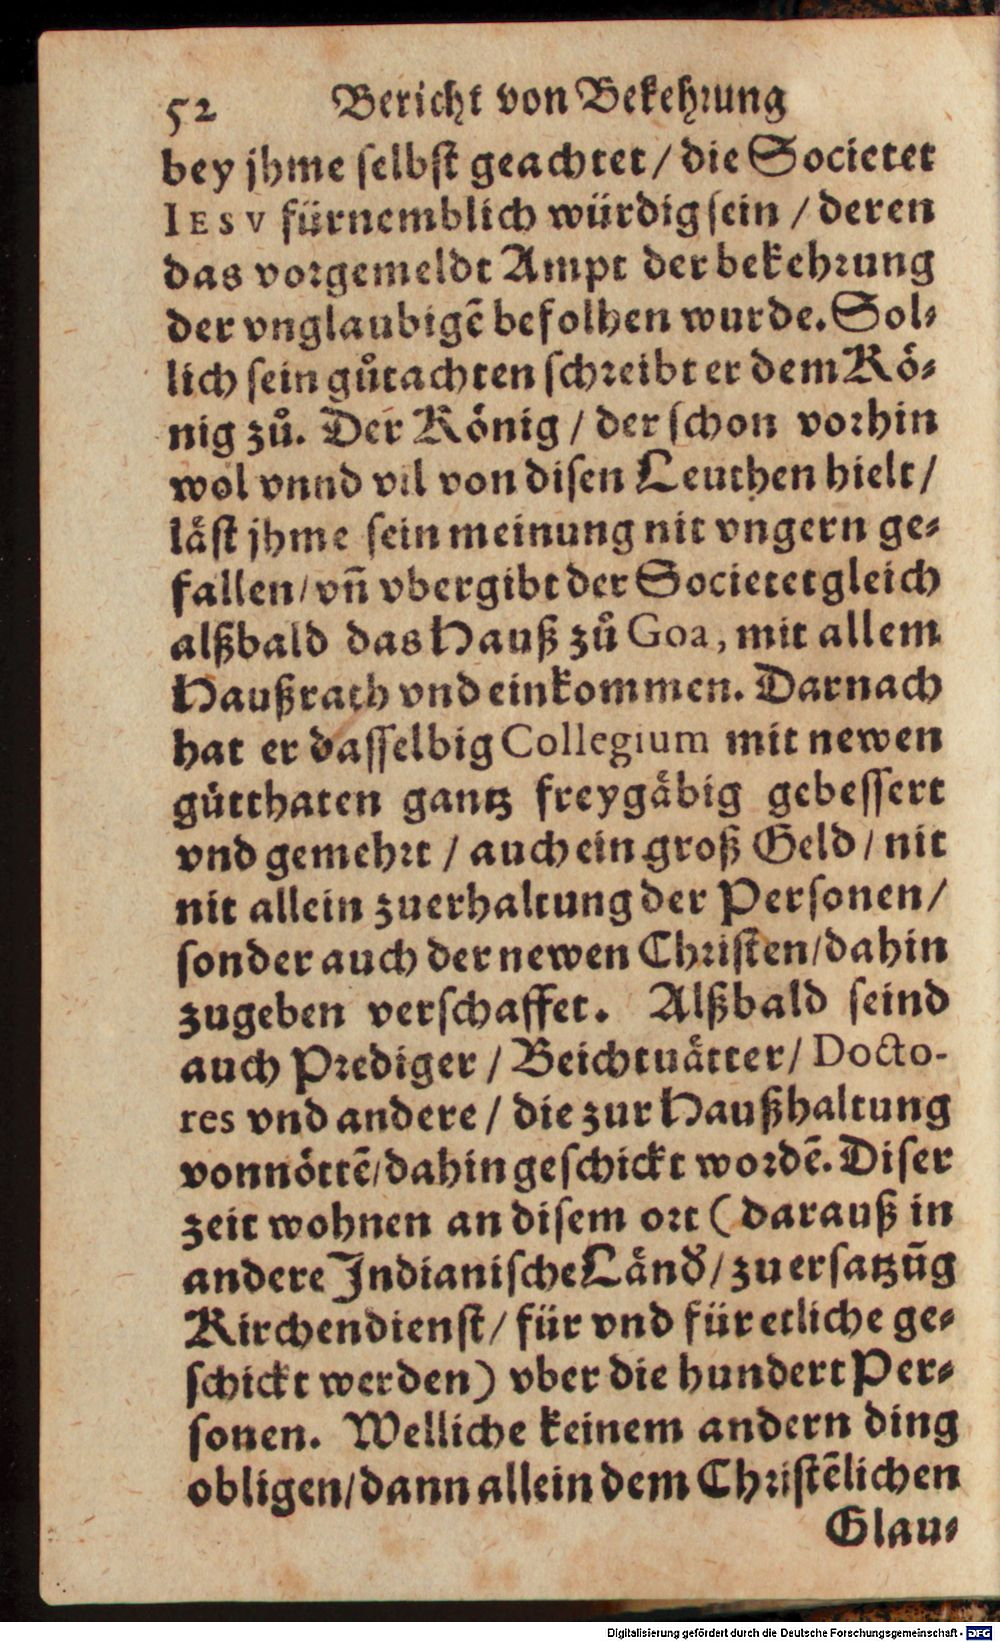 52 Bericht von Bekehrung
bey jhme selbst geachtet / die Societet
IESV fürnemblich würdig sein / deren
das vorgemeldt Ampt der bekehrung
der vnglaubigē befolhen wurde. Sol-
lich sein gůtachten schreibt er dem Kö-
nig zů. Der König / der schon vorhin
wol vnnd vil von disen Leuthen hielt /
läst jhme sein meinung nit vngern ge-
fallen / vn̄ vbergibt der Societet gleich
alßbald das Hauß zů Goa, mit allem
Haußrath vnd einkommen. Darnach
hat er dasselbig Collegium mit newen
gůtthaten gantz freygäbig gebessert
vnd gemehrt / auch ein groß Geld / nit
nit allein zuerhaltung der Personen /
sonder auch der newen Christen / dahin
zugeben verschaffet. Alßbald seind
auch Prediger / Beichtuätter / Docto-
res vnd andere / die zur Haußhaltung
vonnöttē / dahin geschickt wordē. Diser
zeit wohnen an disem ort ( darauß in
andere Indianische Länd / zu ersatzūg
Kirchendienst / für vnd für etliche ge-
schickt werden ) vber die hundert Per-
sonen. Welliche keinem andern ding
obligen / dann allein dem Christēlichen
Glau-
Digitalisierung gefördert durch die Deutsche Forschungsgemeinschaft - DFG